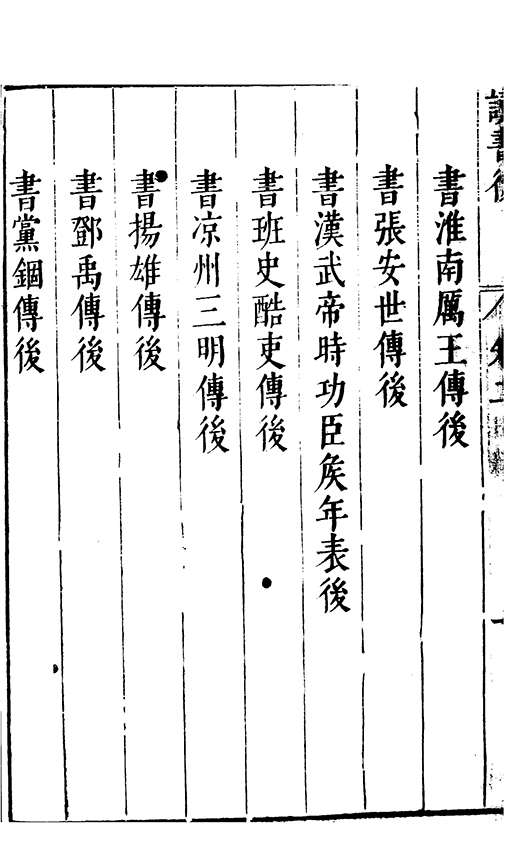 書淮南厲王傳後
書張安世傳後
書漢武帝時功臣矦年表後
書班史酷吏傳後
書凉州三明傳後
書揚雄傳後
書鄧禹傳後
書黨錮傳後